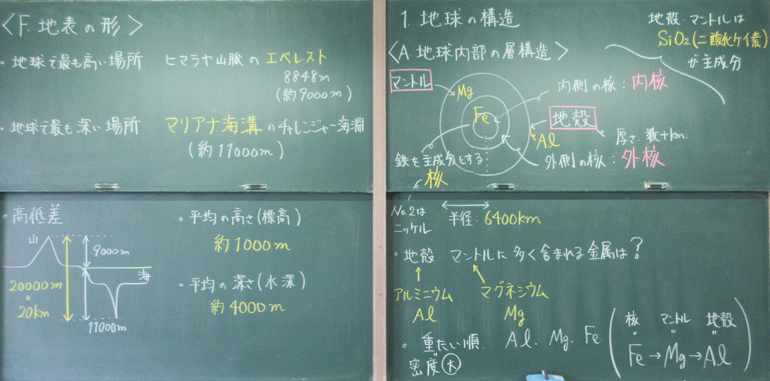 〈F. 地表の形〉
・地球で最も高い場所 ヒマラヤ山脈のエベレスト
8848m
(約9000m)
・地球で最も深い場所 マリアナ海溝のチャレンジャー海淵
(約11000m)
・高低差
山
9000m
海
20000m
〃
20km
11000m
・平均の高さ(標高)
約1000m
・平均の深さ(水深)
約4000m
1. 地球の構造
〈A. 地球内部の層構造〉
地殻・マントルは
SiO2(二酸化ケイ素)
が主成分
マントル
Mg
Fe
Al
内側の核:内核
地殻
厚さ 数十km
外側の核:外核
鉄を主成分とする
核
No.2は
ニッケル
半径:6400km
・地殻 マントルに多く含まれる金属は?
アルミニウム マグネシウム
Al Mg
・重たい順 Al. Mg. Fe
密度大
核 マントル 地殻
〃 〃 〃
Fe→Mg→Al